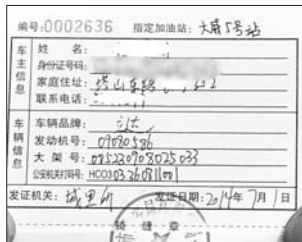 编号:0002636 指定加油站: 大威5号站
车主信息
姓 名:
身份证号码:
家庭住址: 塔山东路
联系电话:
车辆信息
车辆品牌:
发动机号: 09080586
大 架 号: 085230908025033
公安机关打码号: HC0303260811001
发证机关: 城里所 发证日期: 2014年7月1日
骑 缝 章